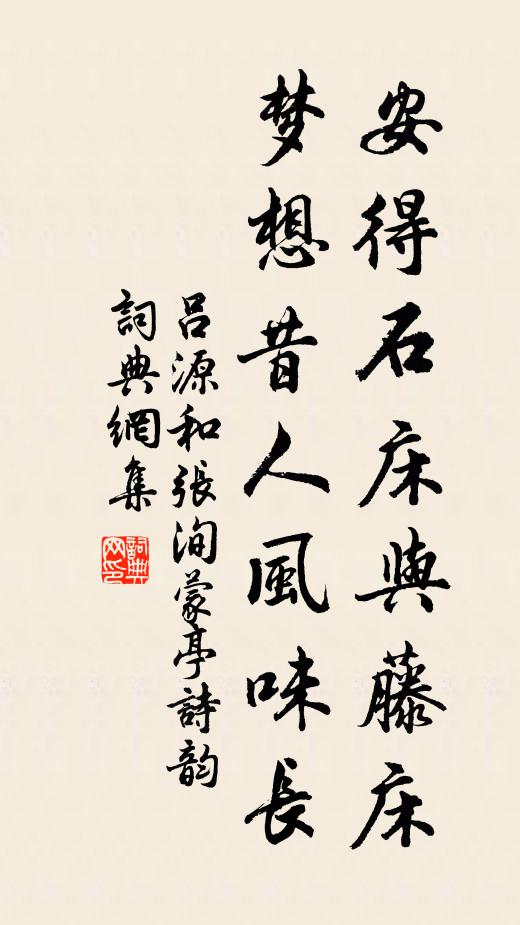 安得石床與藤床
梦想昔人風味長
吕源和張洵蒙亭詩韵
詞典網集
詞典网印